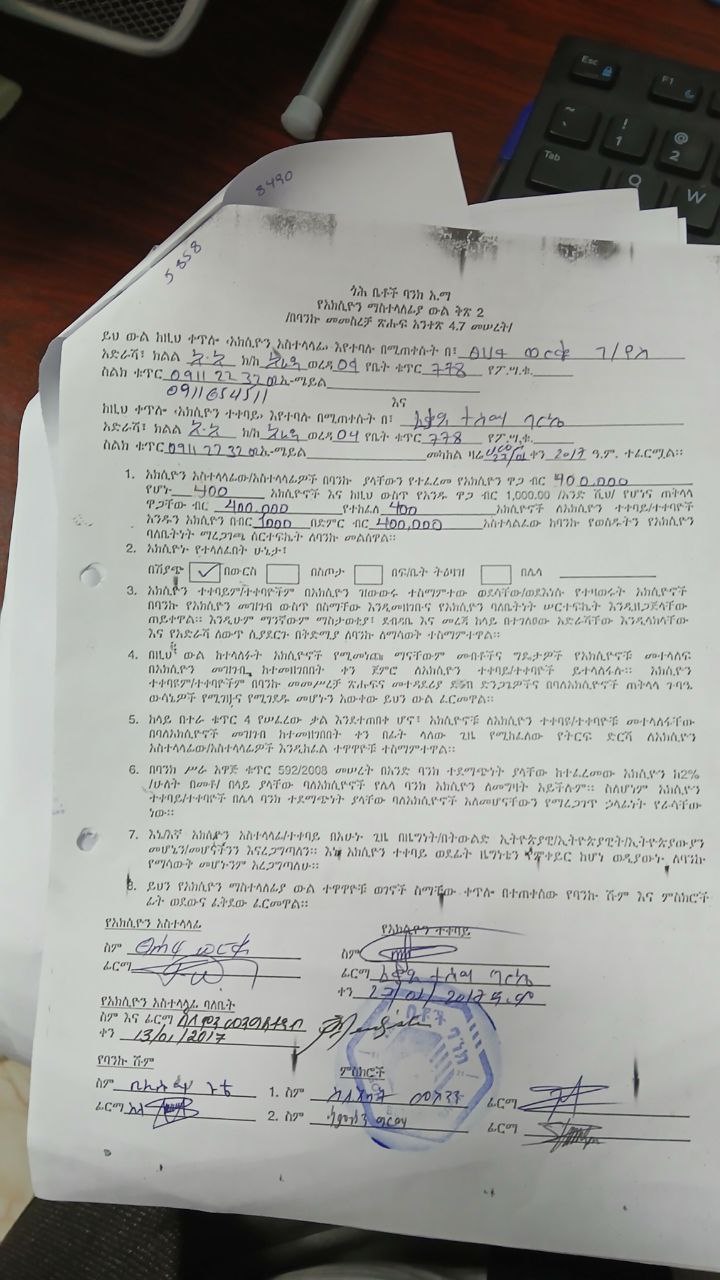 8490
5858
ጎሕ ቤቶች ባንክ አ.ማ
የአክሲዮን ማስተላለፊያ ውል ቅጽ 2
/በባንኩ መመስረቻ ጽሑፍ አንቀጽ 4.7 መሠረት/
ይህ ውል ከዚህ ቀጥሎ ‹አክሲዮን አስተላላፊ› እየተባሉ በሚጠቀሱት በ፣ ወርቁ
አድራሻ፣ ክልል አ.አ ክ/ከ ወረዳ 04 የቤት ቁጥር 778 የፖ.ሣ.ቁ.
ስልክ ቁጥር 0911 22 32 ኢ-ሜይል
0911654511
እና
ከዚህ ቀጥሎ ‹አክሲዮን ተቀባይ› እየተባሉ በሚጠቀሱት በ፣ ተስማ
አድራሻ፣ ክልል አ.አ ክ/ከ ወረዳ 04 የቤት ቁጥር 778 የፖ.ሣ.ቁ.
ስልክ ቁጥር 0911 22 32 ኢ-ሜይል መካከል ዛሬ ቀን 2017 ዓ.ም. ተፈርሟል፡፡
1. አክሲዮን አስተላላፊው/አስተላላፊዎች በባንኩ ያላቸውን የተፈረመ የአክሲዮን ዋጋ ብር 400,000
የሆኑ 400 አክሲዮኖች እና ከዚህ ውስጥ የአንዱ ዋጋ ብር 1,000.00 /አንድ ሺህ/ የሆነና ጠቅላላ
ዋጋቸው ብር 400,000 የተከፈለ 400 አክሲዮኖች ለአክሲዮን ተቀባይ/ተቀባዮች
እንዱን አክሲዮን በብር 1000 በድምር ብር 400,000 አስተላልፈው ከባንኩ የወሰዱትን የአክሲዮን
ባለቤትነት ማረጋገጫ ሰርተፍኬት ለባንኩ መልሰዋል፡፡
2. አክሲዮኑ የተላለፈበት ሁኔታ፣
በሽያጭ ✓ በውርስ በስጦታ በፍ/ቤት ትዕዛዝ በሌላ
3. አክሲዮን ተቀባይም/ተቀባዮችም በአክሲዮን ዝውውሩ ተስማምተው ወደእሳቸው/ወደእነሱ የተዛወሩት አክሲዮኖች
በባንኩ የአክሲዮን መዝገብ ውስጥ በስማቸው እንዲመዘገቡና የአክሲዮን ባለቤትነት ሠርተፍኬት እንዲዘጋጅላቸው
ጠይቀዋል፡፡ እንዲሁም ማንኛውም ማስታወቂያ፣ ደብዳቤ እና መረጃ ከላይ በተገለፀው አድራሻቸው እንዲላክላቸው
እና የአድራሻ ለውጥ ሲያደርጉ በትድሚያ ለባንኩ ለማሳወቅ ተስማምተዋል፡፡
4. በዚህ ውል ከተላለፉት አክሲዮኖች የሚመነጩ ማናቸውም መብቶችና ግዴታዎች የአክሲዮኖቹ መተላለፍ
በአክሲዮን መዝገቡ ከተመዘገበበት ቀን ጀምሮ ለአክሲዮን ተቀባይ/ተቀባዮች ይተላለፋሉ፡፡ አክሲዮን
ተቀባዩም/ተቀባዮችም በባንኩ መመሥረቻ ጽሑፍና መተዳደሪያ ደንብ ድንጋጌዎችና በባለአክሲዮኖች ጠቅላላ ጉባዔ
ውሳኔዎች የሚገዙና የሚገደዱ መሆኑን አውቀው ይህን ውል ፈርመዋል፡፡
5. ከላይ በተራ ቁጥር 4 የሠፈረው ቃል እንደተጠበቀ ሆኖ፣ አክሲዮኖቹ ለአክሲዮን ተቀባዩ/ተቀባዮቹ መተላለፋቸው
በባለአክሲዮኖች መዝገብ ከተመዘገበበት ቀን በፊት ላለው ጊዜ የሚከፈለው የትርፍ ድርሻ ለአክሲዮን
አስተላላፊው/አስተላላፊዎች እንዲከፈል ተዋዋዮቹ ተስማምተዋል፡፡
6. በባንክ ሥራ አዋጅ ቁጥር 592/2008 መሠረት በአንድ ባንክ ተደማጭነት ያላቸው ከተፈረመው አክሲዮን ከ2%
/ሁለት በመቶ/ በላይ ያላቸው ባለአክሲዮኖች የሌላ ባንክ አክሲዮን ለመግዛት አይችሉም፡፡ ስለሆነም አክሲዮን
ተቀባይ/ተቀባዮች በሌላ ባንክ ተደማጭነት ያላቸው ባለአክሲዮኖች አለመሆናቸውን የማረጋገጥ ኃላፊነት የራሳቸው
ነው፡፡
7. እኔ/እኛ አክሲዮን አስተላላፊ/ተቀባይ በአሁኑ ጊዜ በዜግነት/በትውልድ ኢትዮጵያዊ/ኢትዮጵያዊት/ኢትዮጵያውያን
መሆኔን/መሆናችንን እናረጋግጣለን፡፡ እኔ አክሲዮን ተቀባይ ወደፊት ዜግነቴን የምቀይር ከሆነ ወዲያውኑ ለባንኩ
የማሳውቅ መሆኑንም አረጋግጣለሁ፡፡
8. ይህን የአክሲዮን ማስተላለፊያ ውል ተዋዋዮቹ ወገኖች ስማቸው ቀጥሎ በተጠቀሰው የባንኩ ሹም እና ምስክሮች
ፊት ወደውና ፈቅደው ፈርመዋል፡፡
የአክሲዮን አስተላላፊ
ስም ወርቁ
ፊርማ
የአክሲዮን ተቀባይ
ስም
ፊርማ ተስማ
ቀን 2017 ዓ.ም
የአክሲዮን አስተላላፊ ባለቤት
ስም እና ፊርማ
ቀን 13/01/2017
የባንኩ ሹም
ስም
ፊርማ
ምስክሮች
1. ስም ፊርማ
2. ስም ፊርማ